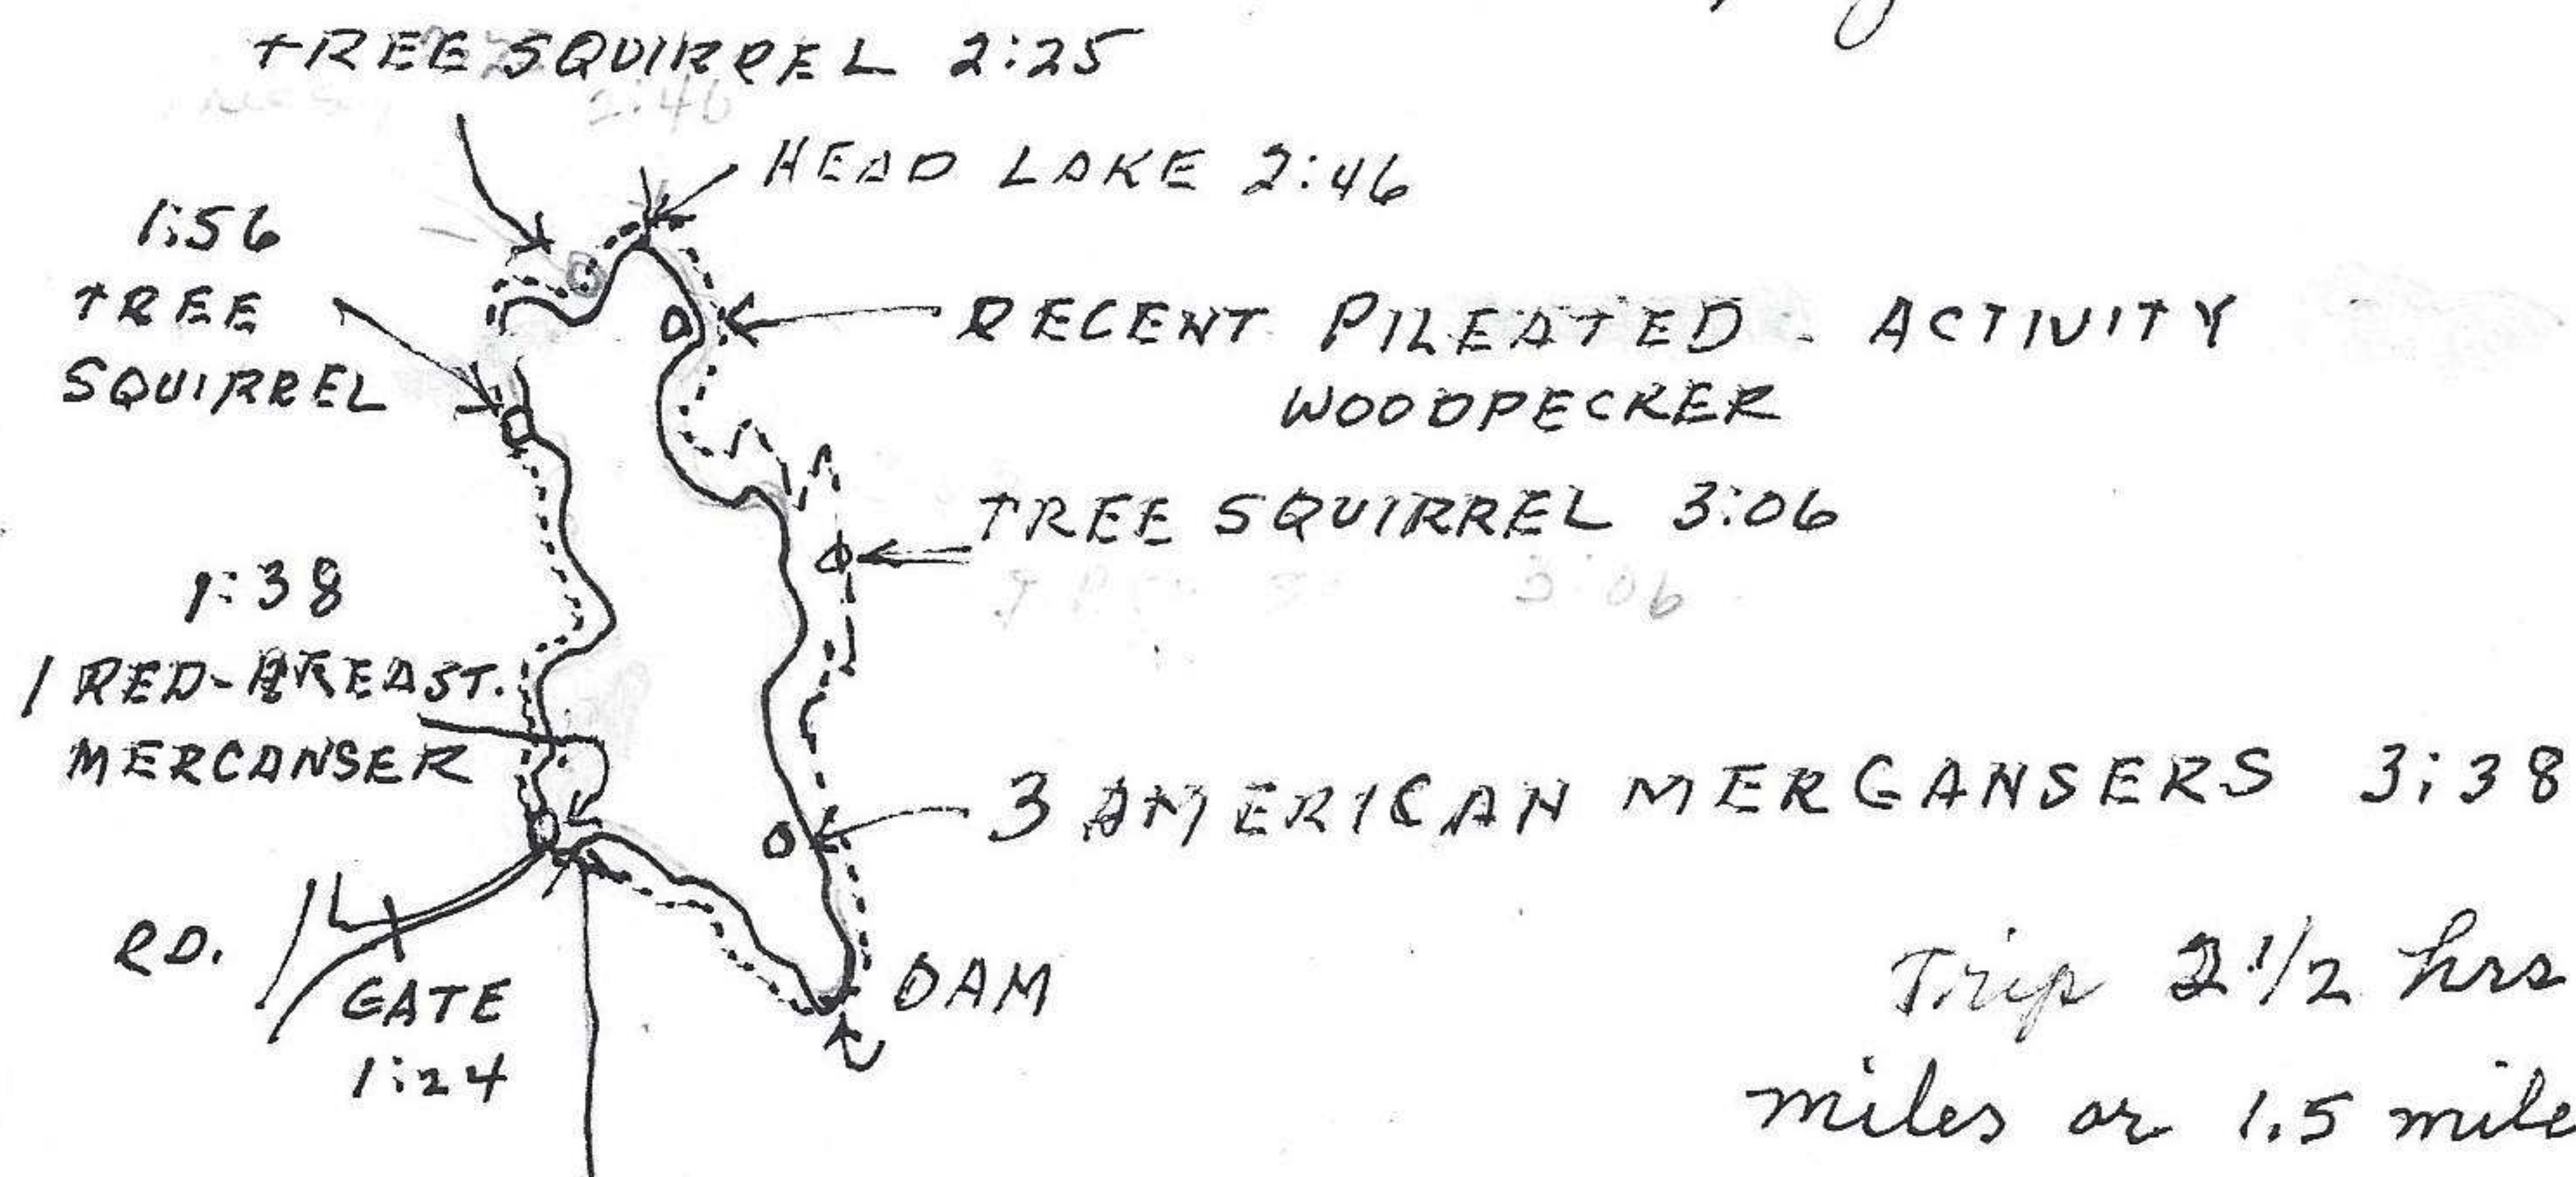 TREE SQUIRREL 2:25
2:46
HEAD LAKE 2:46
1:56
TREE
SQUIRREL
RECENT PILEATED - ACTIVITY
WOODPECKER
TREE SQUIRREL 3:06
3:06
1:38
1 RED-BREAST.
MERCANSER
3 AMERICAN MERGANSERS 3:38
RD.
GATE
1:24
DAM
Trip 2 1/2 hrs
miles or 1.5 mile